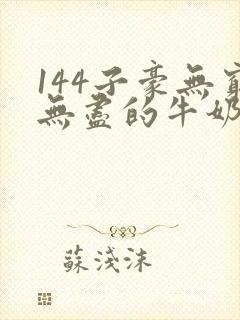 144子豪無窮
無盡的牛奶
蘇淺沫